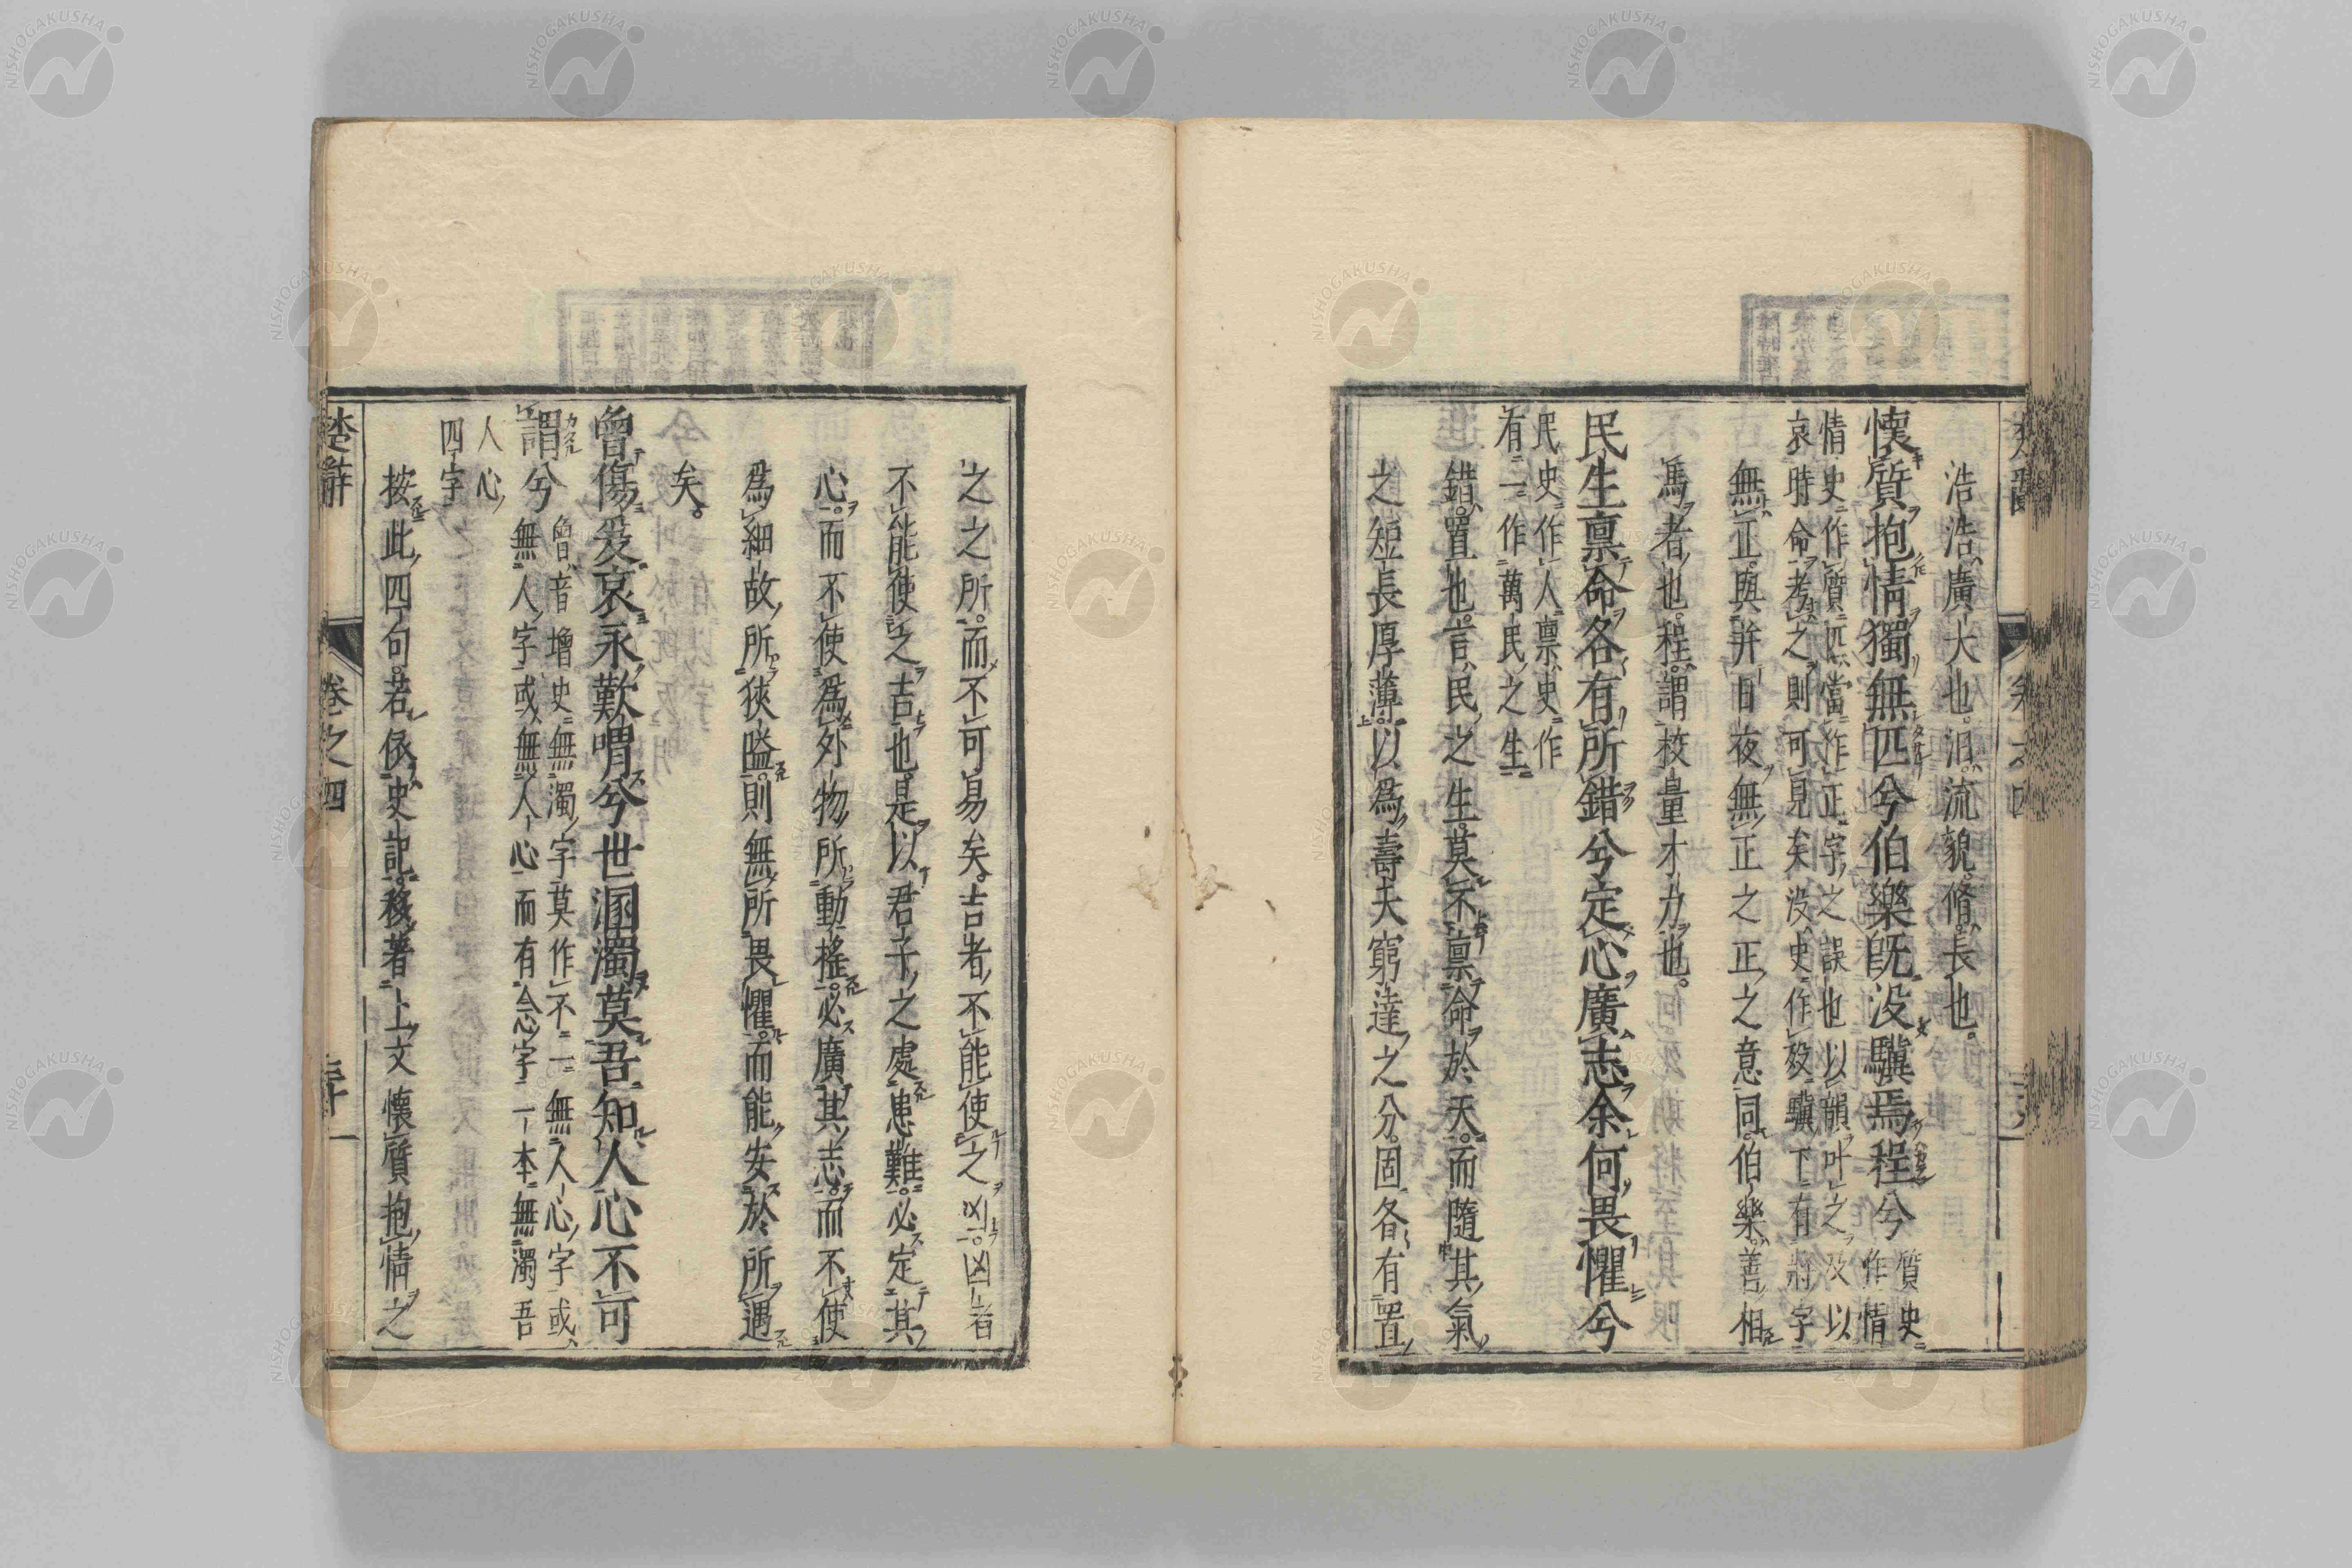 浩浩廣大也。汨流貌。脩長也。
懷質抱情獨無匹兮伯樂既沒驥焉程兮 質史作情
情史作質匹當作正字之誤也以韻叶之及以
哀時命考之則可見矣沒史作歿驥下有將字
無正與并日夜無正之正之意同。伯樂善相
馬者也。程謂校量才力也。
民生禀命各有所錯兮定心廣志余何畏懼兮
民史作人禀史作
有一作萬民之生
錯置也。言民之生莫不禀命於天。而隨其氣
之短長厚薄以為壽夭窮達之分。固各有置
之之所。而不可易矣。吉者不能使之凶。凶者
不能使之吉也。是以君子之處患難。必定其
心。而不使為外物所動搖。必廣其志。而不使
為細故所狹隘。則無所畏懼。而能安於所遇
矣。
曾傷爰哀永歎喟兮世溷濁莫吾知人心不可
謂兮 曾音增史無濁字莫作不一無人心字或
無人字或無人心而有念字一本無濁吾
人心
四字
按此四句。若依史記。移著上文懷質抱情之
楚辭 卷之四 三十一